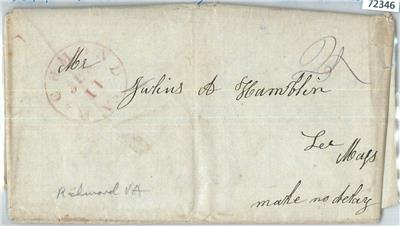 72346
RICHMOND Va.
11
Mr
Julius A Hamblin
Lee
Mass
make no delay
Richmond VA